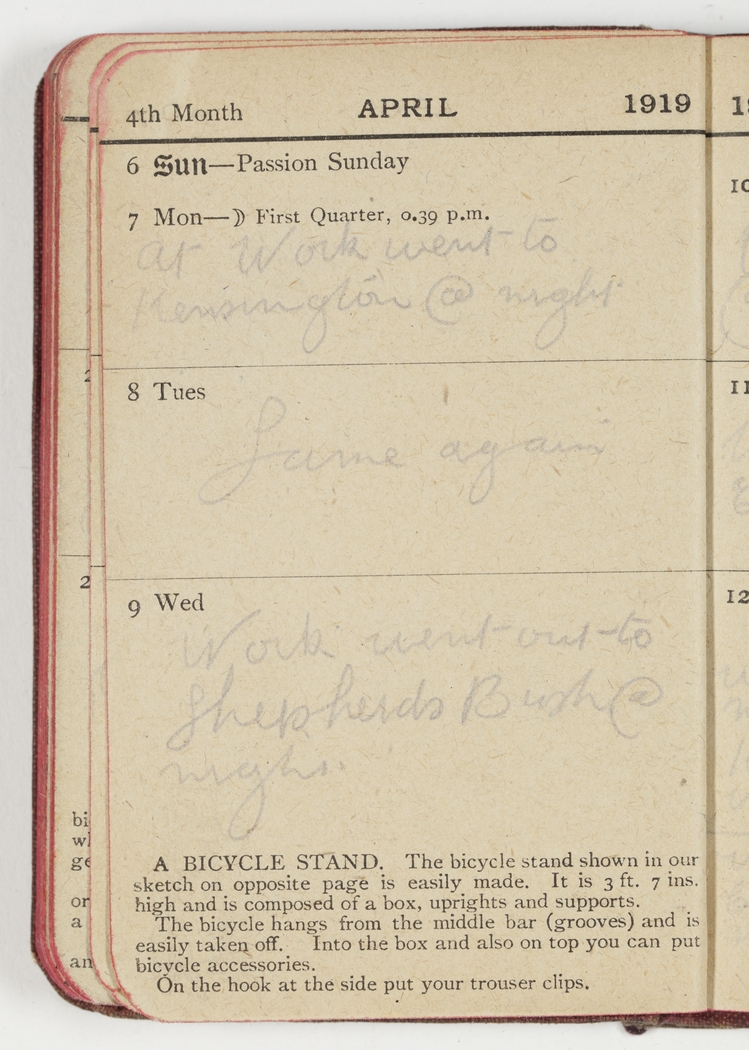 4th Month APRIL 1919
6 Sun—Passion Sunday
7 Mon—☽ First Quarter, 0.39 p.m.
At Work went to
Kensington @ night
8 Tues
Same again
9 Wed
Work went out to
Shepherds Bush @
night.
A BICYCLE STAND. The bicycle stand shown in our
sketch on opposite page is easily made. It is 3 ft. 7 ins.
high and is composed of a box, uprights and supports.
The bicycle hangs from the middle bar (grooves) and is
easily taken off. Into the box and also on top you can put
bicycle accessories.
On the hook at the side put your trouser clips.
10
11
12